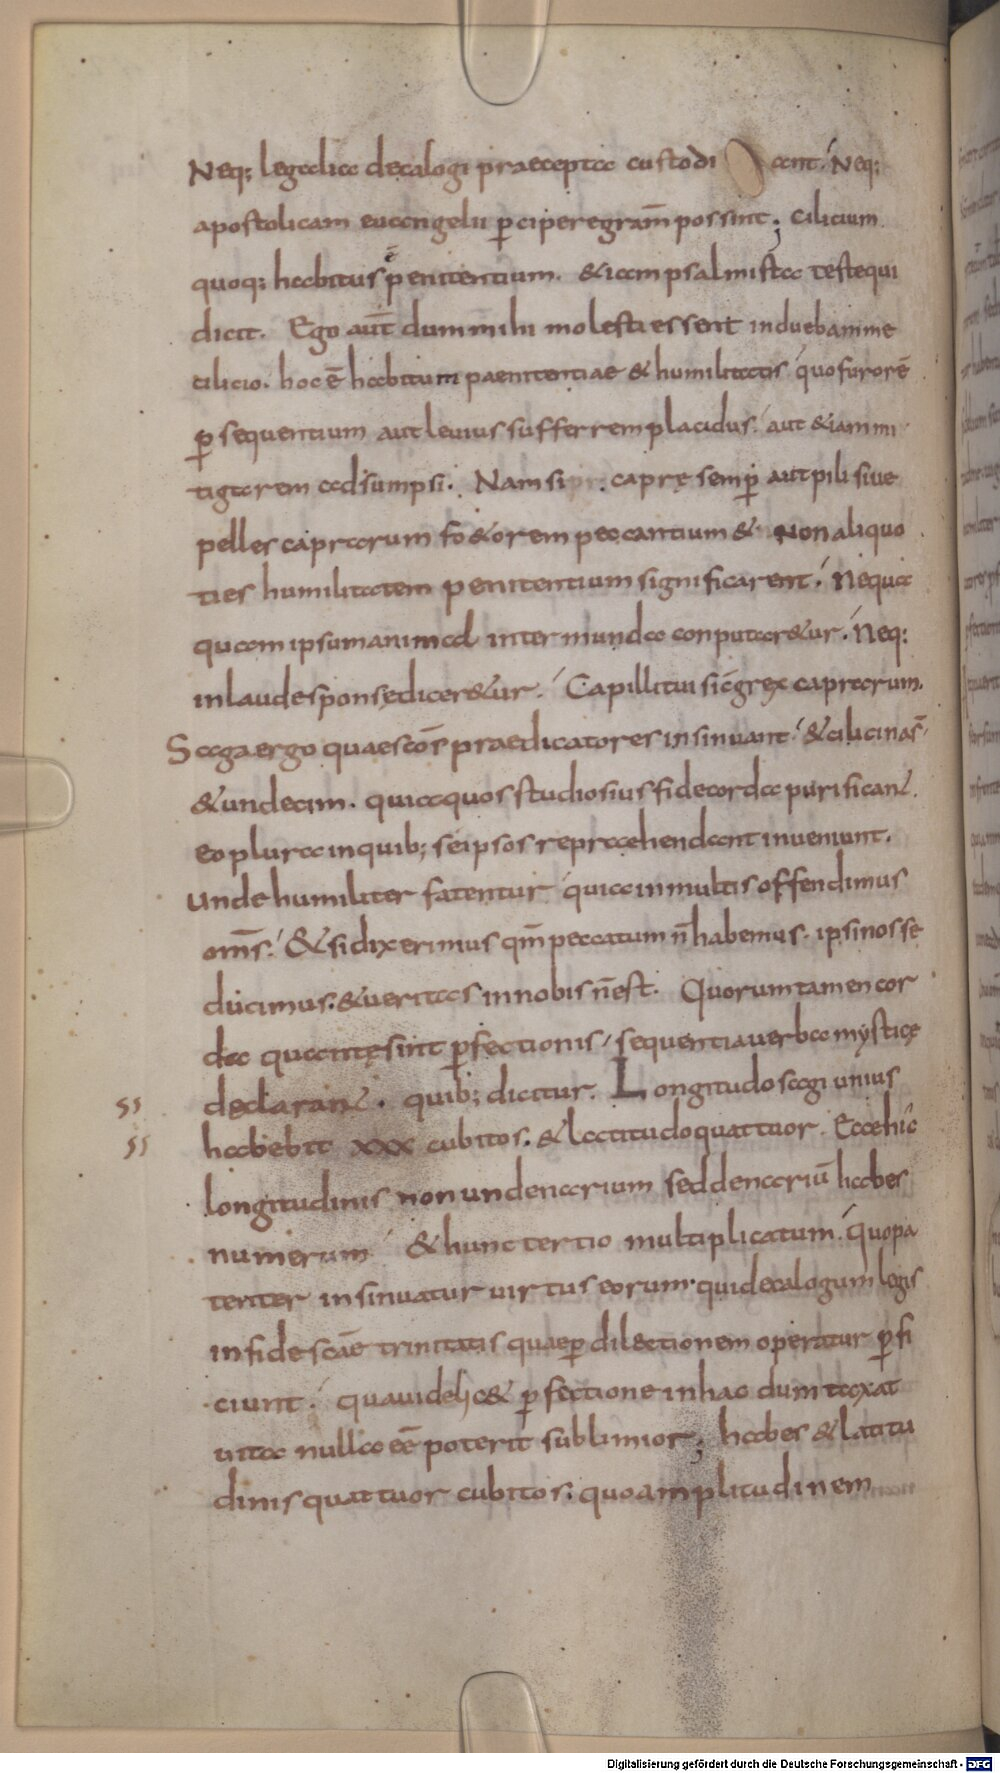 Neq; legalia decalogi praecepta custodi ant. Neq;
apostolicam euangelii p̱ciperegram̄ possint; Cilicium
quoq; habitus ē penitentium. &iam psalmista testequi
dicit. Ego aut̄ dum mihi molesti essent induebam me
cilicio. hoc ē habitum paenitentiae & humilitatis quo furorē
p̱sequentium aut leuius sufferrem placidus. aut &iam mi
tigarem adsumpsi. Nam si caprę semp̱ aut pili siue
pelles caprarum fo&orem peccantium & Non aliquo
ties humilitatem penitentium significarent. Nequa
quam ipsum animad inter munda conputar&ur. Neq;
inlaude sponsę dicer&ur. Capilli tui sic̄ grex caprarum.
Saga ergo quae scōs praedicatores insinuant. & cilicina s̄
& undecim. quia quos studiosius fide corda purifican&.
eo plura in quib; se ipsos repraehendant inueniunt.
Unde humiliter fatentur quia in multis offendimus
om̄s. & si dixerimus qm̄ peccatum n̄ habemus. ipsi nos se
ducimus. & ueritas in nobis n̄ est. Quorum tamen cor
da quantę sint p̱fectionis, sequentia uerba mysticę
declaran&. quib; dicitur. Longitudo sagi unius
habebit xxx cubitos. & latitudo quattuor. Ecce hic
longitudinis non undenarium sed denariū habes
numerum & hunc tertio multiplicatum. quo pa
tenter insinuatur uirtus eorum. qui decalogum legis
in fide scāe trinitatis quae p̱ dilectionem operatur p̱fi
ciunt. qua uidelic& p̱fectione in hac dum taxat
uita nulla eē poterit sublimior; habes & latitu
dinis quattuor cubitos. quo amplitudinem
ss
ss
Digitalisierung gefördert durch die Deutsche Forschungsgemeinschaft - DFG